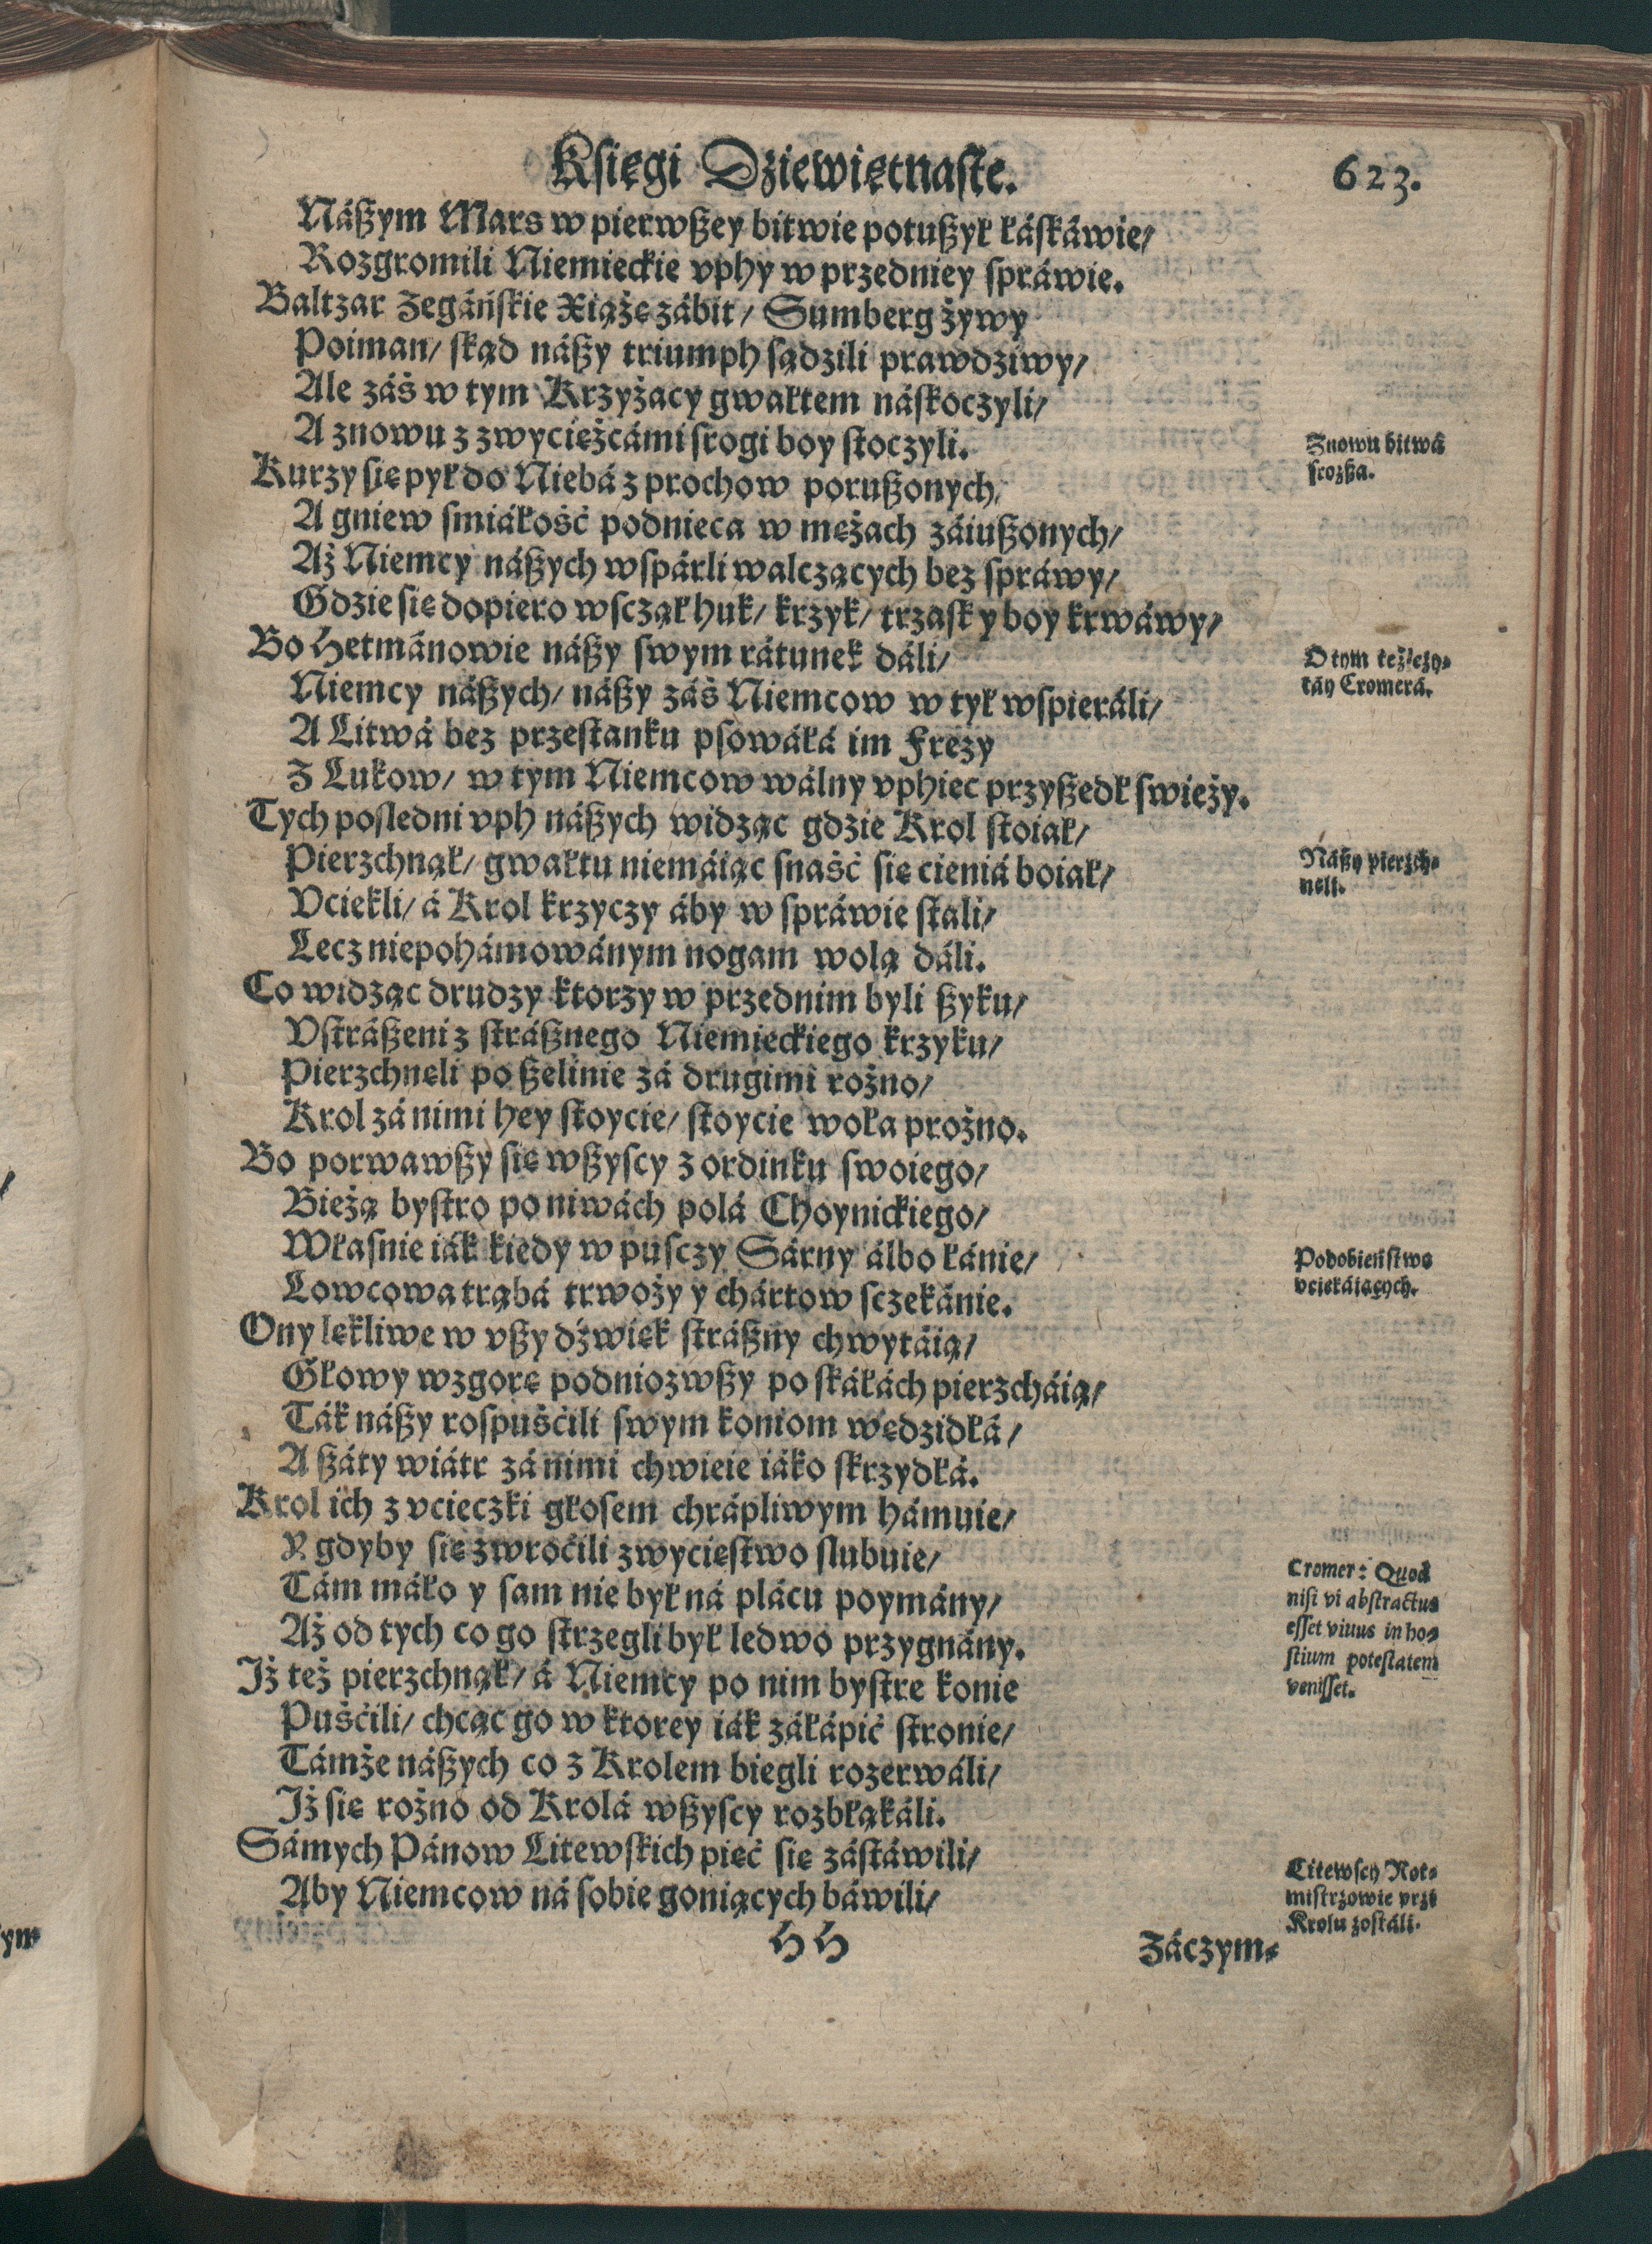 Księgi Dziewiętnaste.
623.
Nászym Mars w pierwszey bitwie potuszył łáskáwie/
Rozgromili Niemieckie vphy w przedniey spráwie.
Baltzar Zegáńskie Xiążę zábit/ Sumberg żywy
Poiman/ skąd nászy triumph sądzili prawdziwy/
Ale záś w tym Krzyżacy gwałtem náskoczyli/
A znowu z zwycieżcámi srogi boy stoczyli.
Znowu bitwá
srozsza.
Kurzy się pył do Niebá z prochow poruszonych,
A gniew smiáłość podnieca w mężach záiuszonych/
Aż Niemcy nászych wspárli walczących bez spráwy/
Gdzie się dopiero wsczął huk/ krzyk/ trzask y boy krwáwy/
Bo Hetmánowie nászy swym rátunek dáli/
O tym też czy-
táy Cromerá.
Niemcy nászych/ nászy záś Niemcow w tył wspieráli/
A Litwá bez przestanku psowáłá im Frezy
Z Lukow/ w tym Niemcow wálny vphiec przyszedł swieży.
Tych posledni vph nászych widząc gdzie Krol stoiał/
Pierzchnął/ gwałtu niemáiąc snaść się cieniá boiał/
Nászy pierzch-
neli.
Vciekli/ á Krol krzyczy áby w spráwie stali/
Lecz niepohámowánym nogam wolą dáli.
Co widząc drudzy ktorzy w przednim byli szyku/
Vstrászeni z strásznego Niemieckiego krzyku/
Pierzchneli po szelinie zá drugimi rożno/
Krol zá nimi hey stoycie/ stoycie woła prożno.
Bo porwawszy się wszyscy z ordinku swoiego/
Bieżą bystro po niwách polá Choynickiego/
Własnie iák kiedy w pusczy Sárny álbo łánie/
Podobieństwo
vciekáiących.
Lowcowa trąbá trwoży y chártow sczekánie.
Ony lękliwe w vszy dźwięk strászny chwytáią/
Głowy wzgorę podniozwszy po skáłách pierzcháią/
Ták nászy rospuścili swym koniom wędzidłá/
A száty wiátr zá nimi chwieie iáko skrzydłá.
Krol ich z vcieczki głosem chrápliwym hámuie/
Y gdyby się zwroćili zwycięstwo slubuie/
Tám máło y sam nie był ná plácu poymány/
Cromer: Quod
nisi vi abstractus
esset viuus in ho-
stium potestatem
venisset.
Aż od tych co go strzegli był ledwo przygnány.
Iż też pierzchnął/ á Niemcy po nim bystre konie
Puśćili/ chcąc go w ktorey iák záłápić stronie/
Támże nászych co z Krolem biegli rozerwáli/
Iż się rożno od Krolá wszyscy rozbłąkáli.
Sámych Pánow Litewskich pięć się zástáwili/
Litewscy Rot-
mistrzowie przi
Krolu zostáli.
Aby Niemcow ná sobie goniących báwili/
HH
Záczym-
ym